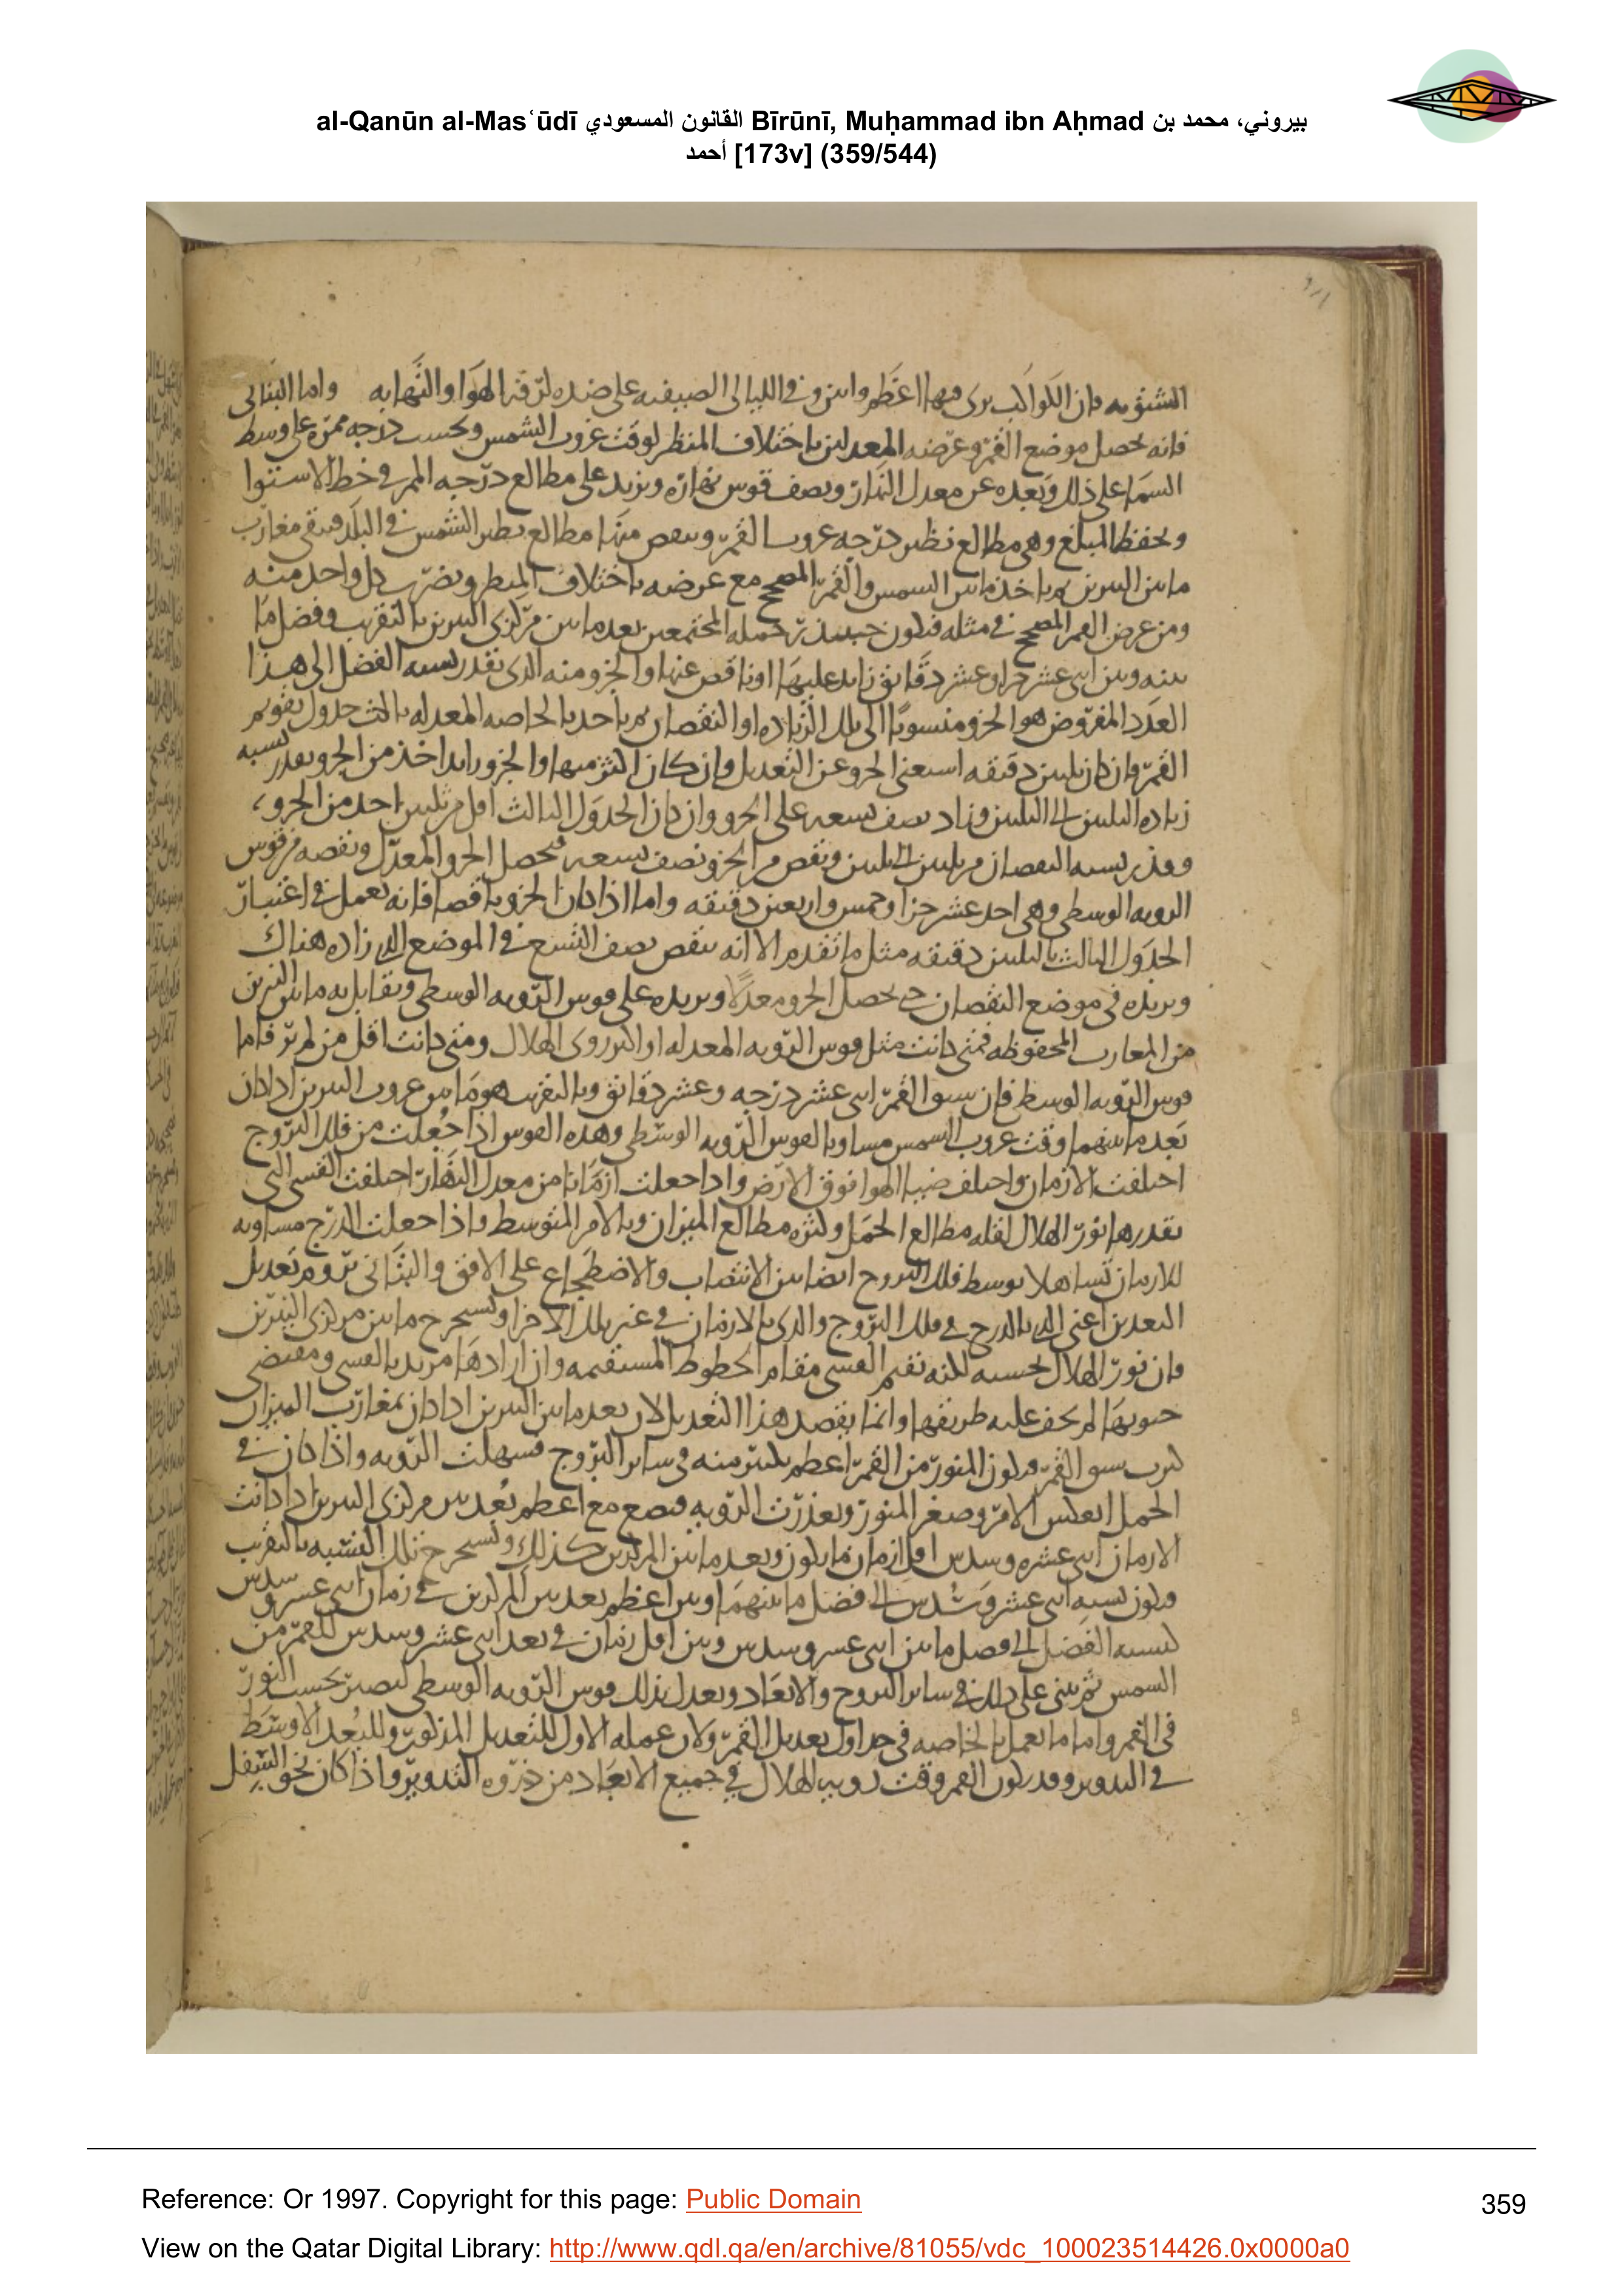 al-Qanūn al-Masʿūdī القانون المسعودي Bīrūnī, Muḥammad ibn Aḥmad بيروني، محمد بن
أحمد [173v] (359/544)
الشتويه فان الكواكب يرى فيها اعظم وابين وفي الليالى الصيفيه على ضده لرقة الهوا والنهايه واما البتانى
فانه يحصل موضع القمر وعرضه المعدلين باختلاف المنظر لوقت غروب الشمس ويحسب درجه ممره على وسط
السما على ذلك وبعده عن معدل النهار ونصف قوس نهاره ويزيد على مطالع درجه الممر في خط الاستوا
ويحفظ المبلغ وهى مطالع نظير درجه غروب القمر وينقص منها مطالع نظير الشمس في البلد فيبقى مغارب
ما بين النيرين ثم ياخذ ما بين الشمس والقمر المصحح مع عرضه باختلاف المنظر ويضرب كل واحد منه
ومن عرض القمر المصحح في مثله فيكون حينئذ جملة المجتمعين بعد ما بين مركزى النيرين بالتقريب وفضل ما
بينه وبين اثنى عشر جزا وعشر دقائق زايد عليها او ناقص عنها والجزو منه الذى بقدر نسبه الفضل الى هذا
العدد المفروض هو الجزو منسوبا الى تلك الزياده او النقصان ثم ياخذ بالخاصه المعدله ثالث جدول تقويم
القمر فان كان ثلثين دقيقه استغنى الجزو عن التعديل وان كان اكثر منها والجزو زايد اخذ من الجزو بقدر نسبه
زياده الثلثين الى الثلثين وزاد نصف تسعه على الجزو وان كان الجدول الثالث اقل من ثلثين اخذ من الجزو
وبقدر نسبه النقصان من ثلثين الى ثلثين ونقص من الجزو نصف تسعه فيحصل الجزو المعدل ونقصه من قوس
الرويه الوسطى وهى احد عشر جزا وخمس واربعين دقيقه واما اذا كان الجزو ناقصا فانه يعمل في اعتبار
الجدول الثالث بالثلثين دقيقه مثل ما تقدم الا انه ينقص نصف التسع في الموضع الذى زاده هناك
ويزيده في موضع النقصان حتى يحصل الجزو معدلا ويزيده على قوس الرويه الوسطى ويقابل به ما بين النيرين
من المغارب المحفوظه فمتى كانت مثل قوس الرويه المعدله او اكثر روى الهلال ومتى كانت اقل من لم ير فاما
قوس الرويه الوسطى فان سبق القمر اثنى عشر درجه وعشر دقائق وبالتقريب هو ما بين غروب النيرين اذا كان
بعد ما بينهما وقت غروب الشمس مساويا لقوس الرويه الوسطى وهذه القوس اذا جعلت من فلك البروج
اختلفت الازمان واختلف ضيا الهوا فوق الارض واذا جعلت ازمانا من معدل النهار اختلفت القسى التى
بقدرها نور الهلال لقله مطالع الحمل وكثره مطالع الميزان وبالامر المتوسط واذا جعلت الدرج مساويه
للازمان تساهلا بوسط فلك البروج ايضا بين الانتصاب والاضطجاع على الافق والبتانى يروم تعديل
البعدين اعنى الذى بالدرج في فلك البروج والذى بالازمان في غير تلك الاجزا ويستخرج ما بين مركزى النيرين
فان نور الهلال بحسبه لكنه يقيم القسى مقام الخطوط المستقيمه وان ارادها مريد بالقسى ومقتضى
جيوبها لم يخف عليه طريقها وانما يقصد هذا التعديل لان بعد ما بين النيرين اذا كان بمغارب الميزان
كبر سبق القمر فيكون المنور من القمر اعظم بكثير منه في ساير البروج فسهلت الرويه واذا كان في
الحمل انعكس الامر وصغر المنور وتعذرت الرويه فيضع مع اعظم بعد بين مركزى النيرين اذا كانت
الازمان اثنى عشره وسدس اقل ازمان ما يكون وبعد ما بين المركزين كذلك ويستخرج تلك النسبه بالتقريب
فيكون نسبه اثنى عشر وسدس الى فضل ما بينهما وبين اعظم بعد بين المركزين في زمان اثنى عشر وسدس
كنسبه الفضل الى فضل ما بين اثنى عشر وسدس وبين اقل زمان في بعد اثنى عشر وسدس للقمر من
الشمس ثم يبنى على ذلك في ساير البروج والابعاد ويعدل بذلك قوس الرويه الوسطى ليصير بحسب النور
في القمر واما ما يعمل بالخاصه في جداول تعديل القمر ولان عمله الاول للتعديل المذكور وللبعد الاوسط
في التدوير وقد يكون القمر وقت رويه الهلال في جميع الابعاد من ذروه التدوير واذا كان نحو السفل
Reference: Or 1997. Copyright for this page: Public Domain
359
View on the Qatar Digital Library: http://www.qdl.qa/en/archive/81055/vdc_100023514426.0x0000a0